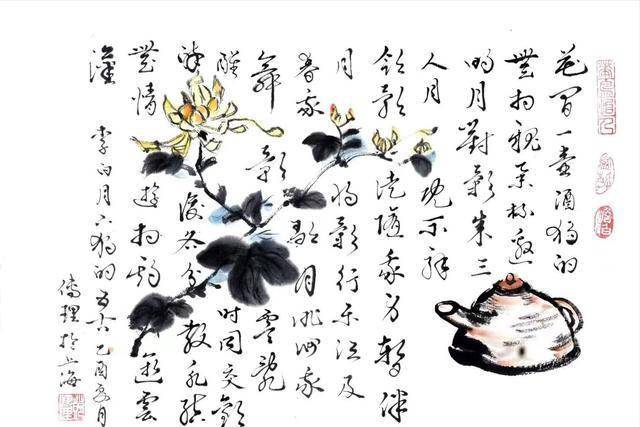 花間一壺酒獨酌
無相親舉杯邀
明月對影成三
人月既不解
飲影徒隨我身暫伴
月將影行樂須及
春我歌月徘徊我
舞影零亂
醒時同交歡
醉後各分散永結
無情遊相期邈雲
漢
李白月下獨酌 乙酉月
於上海